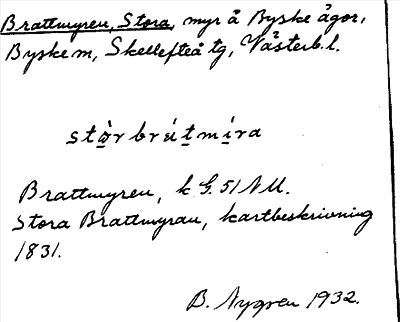 Brattmyren, Stora, myr å Byske ägor,
Byske sn, Skellefteå tg, Västerb. l.
Brattmyren, k G. 51 NU.
Stora Brattmyran, kartbeskrivning
1831.
B. Nygren 1932.